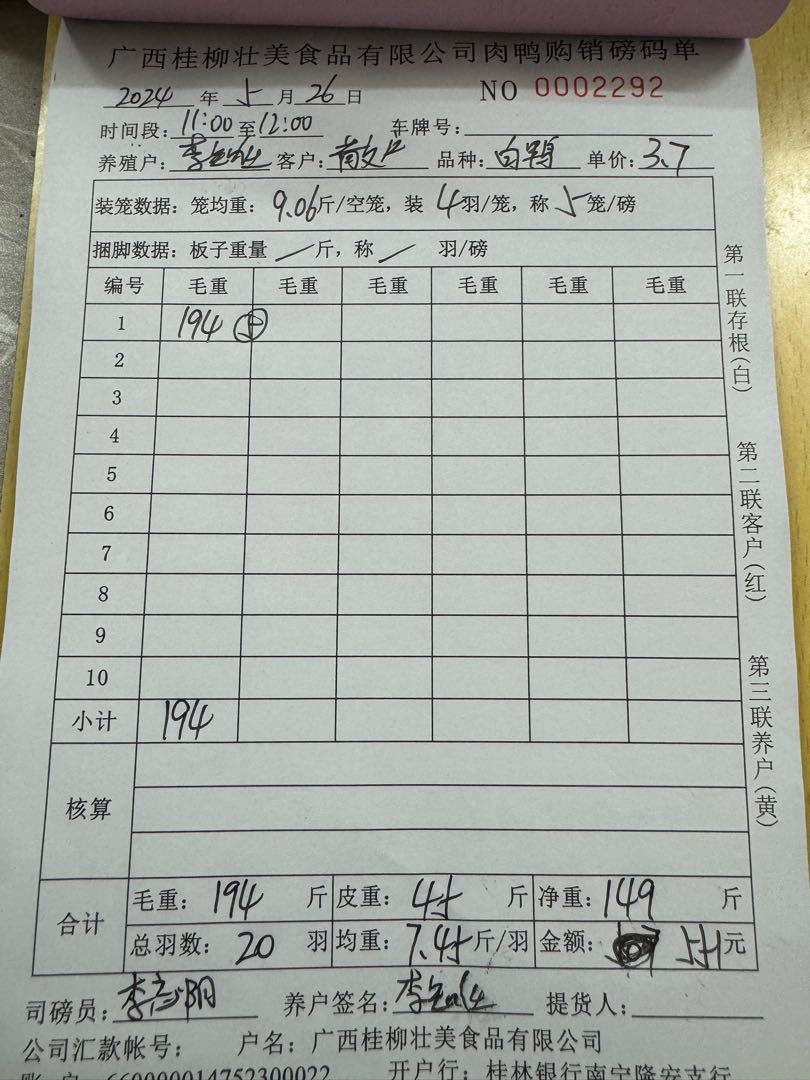 广西桂柳壮美食品有限公司肉鸭购销磅码单
2024 年 5 月 26 日 NO 0002292
时间段：11:00至12:00 车牌号：
养殖户： 客户：散户 品种：白鸭 单价：3.7
装笼数据：笼均重：9.06斤/空笼，装 4羽/笼，称 5笼/磅
捆脚数据：板子重量 / 斤，称 / 羽/磅
编号 毛重 毛重 毛重 毛重 毛重 毛重
1 194 ⑤
2
3
4
5
6
7
8
9
10
小计 194
核算
合计 毛重：194 斤 皮重：45 斤 净重：149 斤
总羽数：20 羽 均重：7.45斤/羽 金额：551元
司磅员：李 阳 养户签名：李 提货人：
公司汇款帐号： 户名：广西桂柳壮美食品有限公司
账 户 660000014752300022 开户行：桂林银行南宁隆安支行
第一联存根(白)
第二联客户(红)
第三联养户(黄)